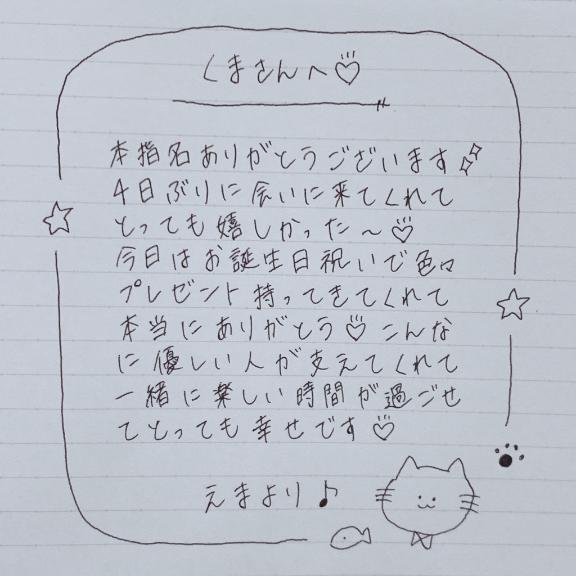 くまさんへ♡
本指名ありがとうございます
4日ぶりに会いに来てくれて
とっても嬉しかった〜♡
今日はお誕生日祝いで色々
プレゼント持ってきてくれて
本当にありがとう♡こんな
に優しい人が支えてくれて
一緒に楽しい時間が過ごせ
てとっても幸せです♡
えまより♪